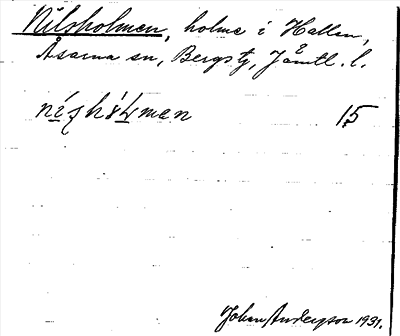 Nilsholmen, holme i Hallen,
Åsarna sn, Bergs tg, Jämtl. l.
15
Johan Anderson 1931.